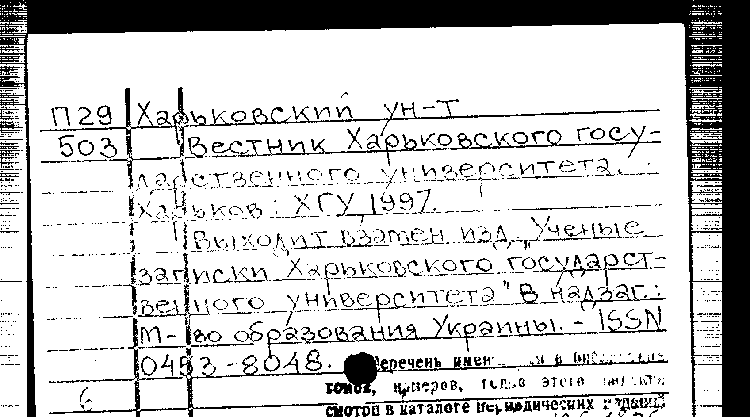 П29 Харьковский ун-т
503 Вестник Харьковского госу-
дарственного университета. -
Харьков : ХГУ, 1997.
Выходит взамен изд. „Ученые
записки Харьковского государст-
венного университета" В надзаг.:
М-во образования Украины. - ISSN
0453-8048. Перечень имеющихся в
томов, номеров, этого
6 смотри в каталоге периодических изданий